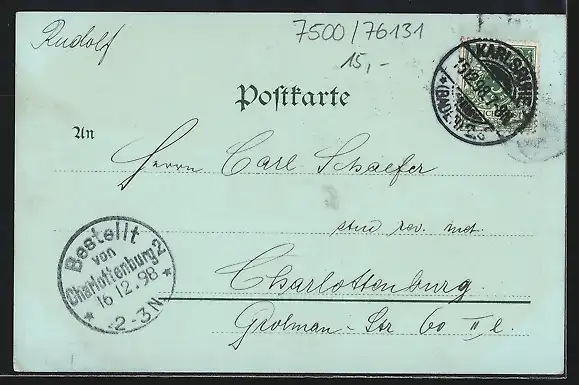 Rudolf
7500/76131
15,-
KARLSRUHE
Postkarte
An
Herrn Carl Schaefer
Charlottenburg.
Grolman-Str 60 II l.
Bestellt
von
Charlottenburg 2
16 12.98
* 2-3N *